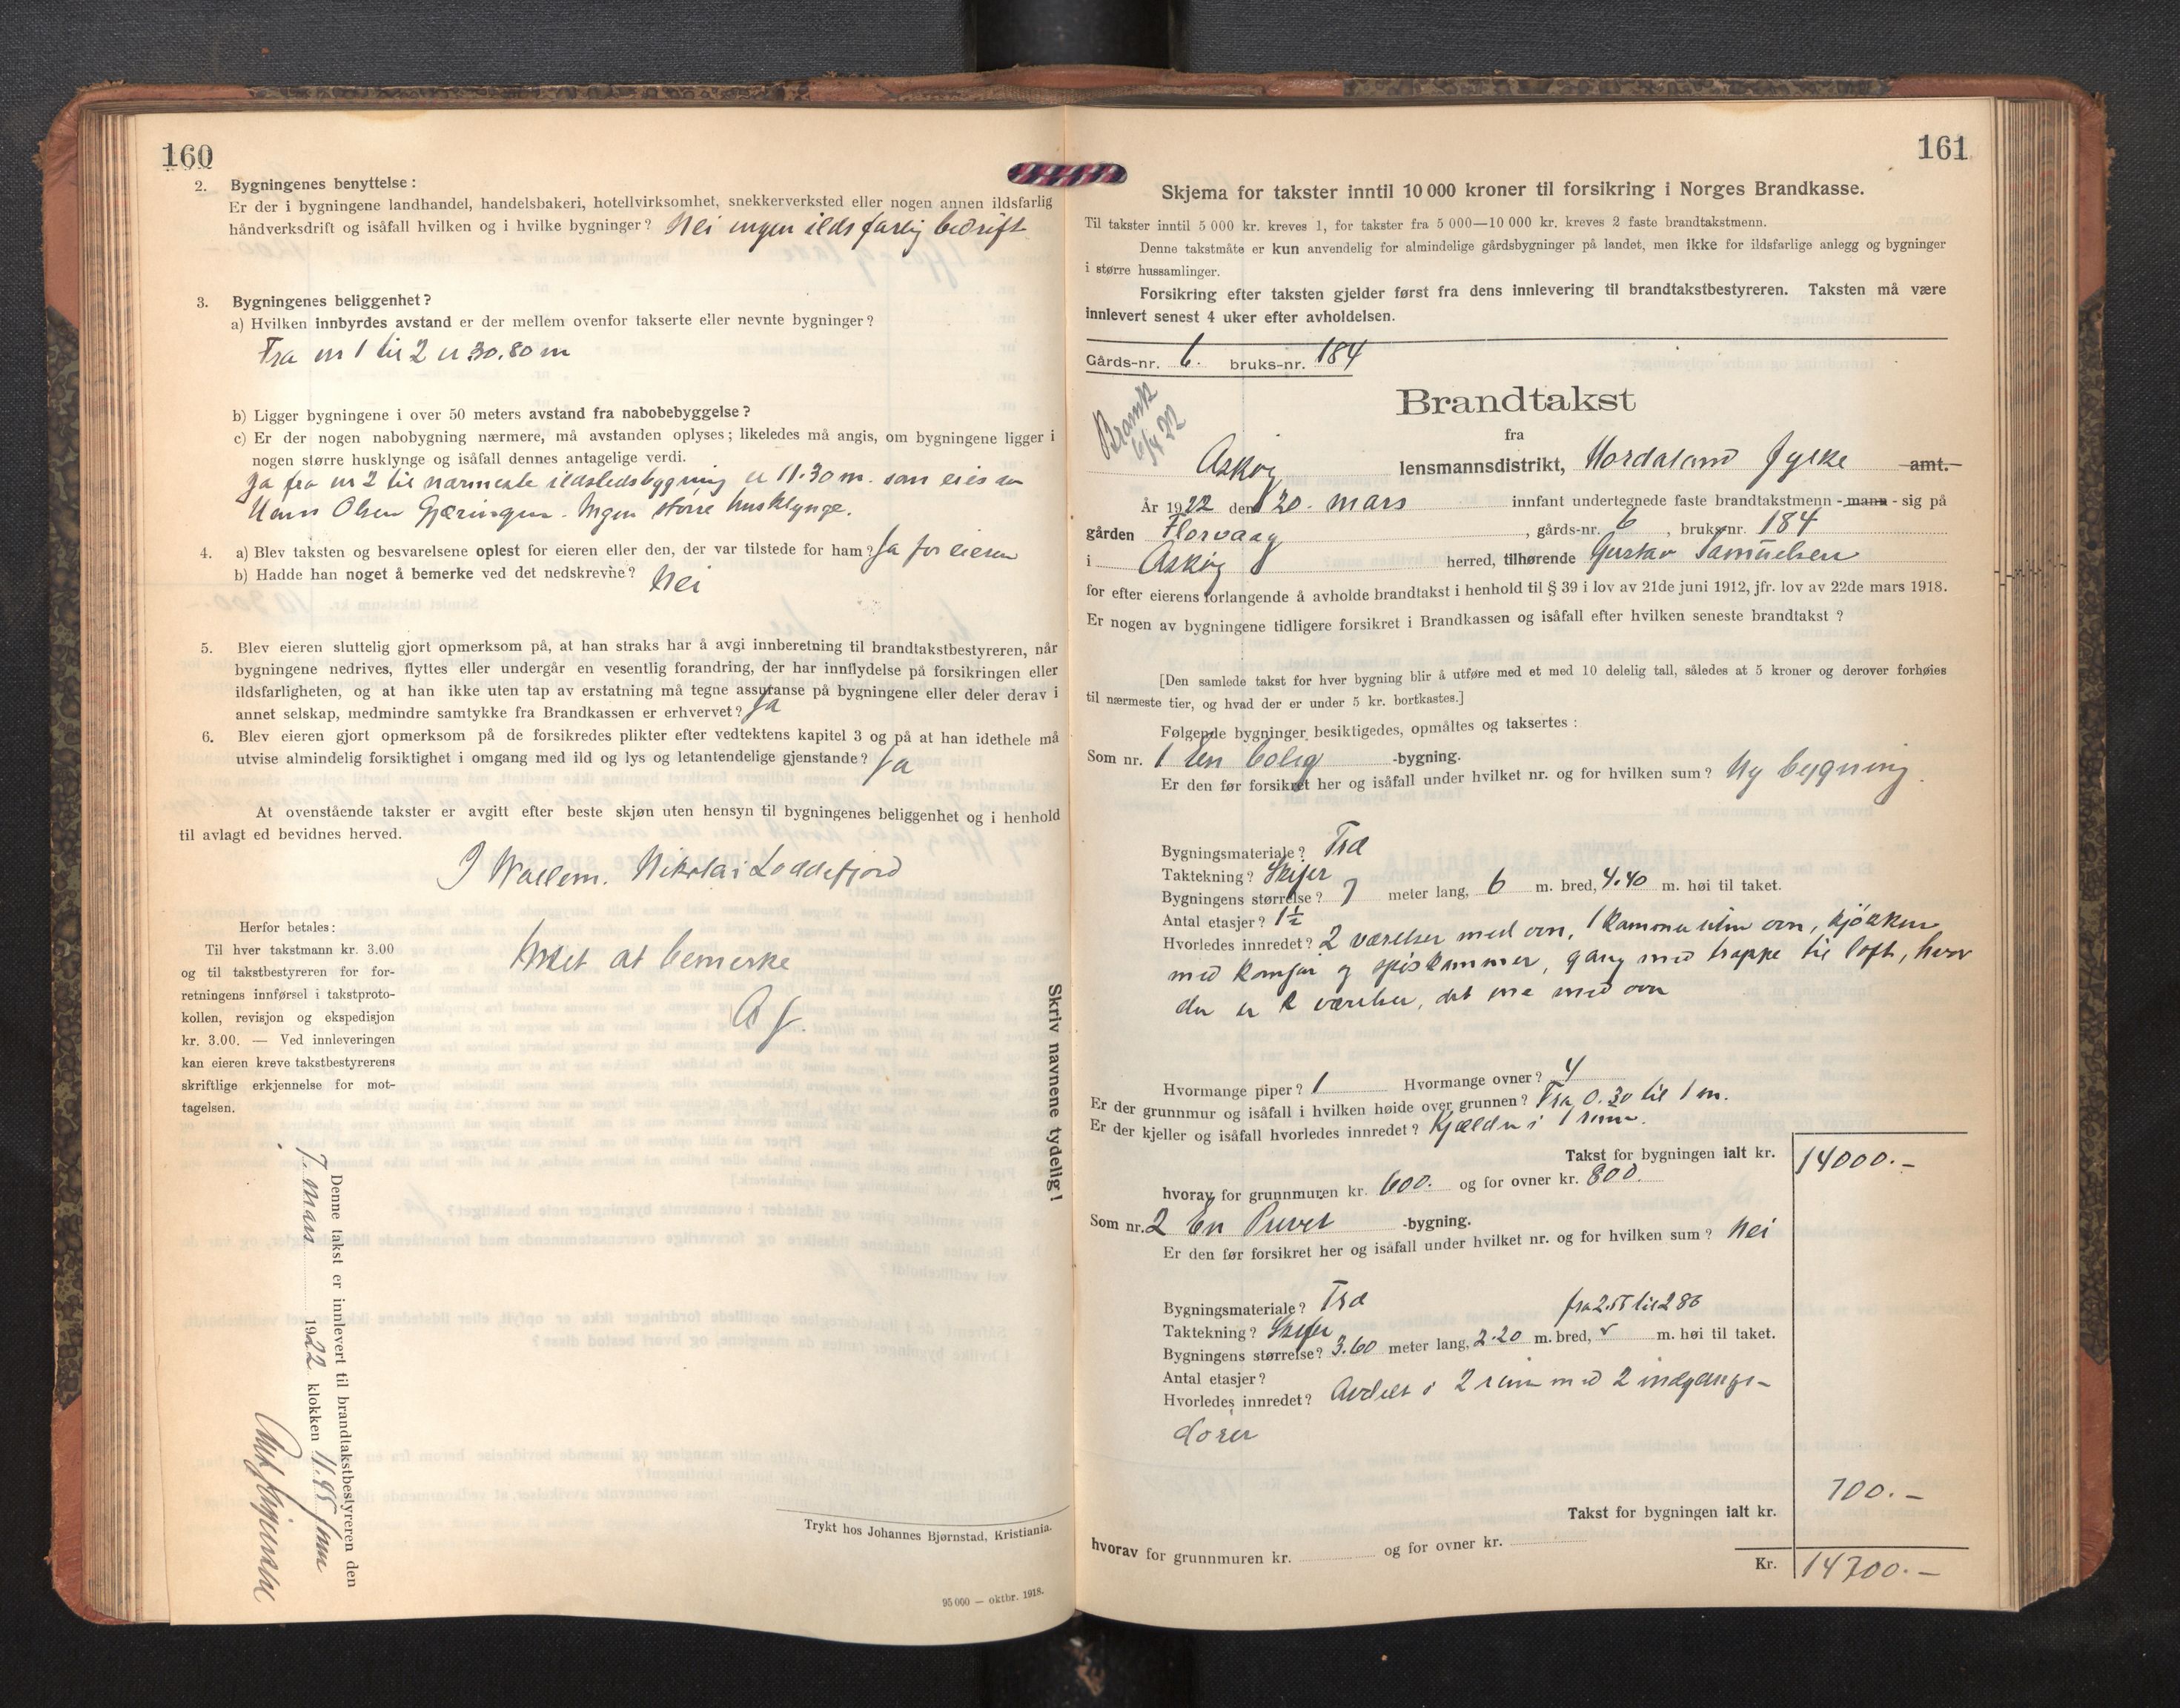 160
2. Bygningenes benyttelse:
Er der i bygningene landhandel, handelsbakeri, hotellvirksomhet, snekkerverksted eller nogen annen ildsfarlig
håndverksdrift og isåfall hvilken og i hvilke bygninger? Nei ingen ildsfarlig bedrift
3. Bygningenes beliggenhet?
a) Hvilken innbyrdes avstand er der mellem ovenfor takserte eller nevnte bygninger?
Fra nr 1 til 2 er 30.80 m
b) Ligger bygningene i over 50 meters avstand fra nabobebyggelse?
c) Er der nogen nabobygning nærmere, må avstanden oplyses; likeledes må angis, om bygningene ligger i
nogen større husklynge og isåfall dennes antagelige verdi.
Ja fra nr 2 til nærmeste ildstedsbygning er 11.30 m. som eies av
Hans Olsen Gjæringen. Ingen större husklynge.
4. a) Blev taksten og besvarelsene oplest for eieren eller den, der var tilstede for ham? Ja for eieren
b) Hadde han noget å bemerke ved det nedskrevne? Nei
5. Blev eieren sluttelig gjort opmerksom på, at han straks har å avgi innberetning til brandtakstbestyreren, når
bygningene nedrives, flyttes eller undergår en vesentlig forandring, der har innflydelse på forsikringen eller
ildsfarligheten, og at han ikke uten tap av erstatning må tegne assuranse på bygningene eller deler derav i
annet selskap, medmindre samtykke fra Brandkassen er erhvervet? Ja
6. Blev eieren gjort opmerksom på de forsikredes plikter efter vedtektens kapitel 3 og på at han idethele må
utvise almindelig forsiktighet i omgang med ild og lys og letantendelige gjenstande? Ja
At ovenstående takster er avgitt efter beste skjøn uten hensyn til bygningenes beliggenhet og i henhold
til avlagt ed bevidnes herved.
J Wallem. Nikolai Loddefjord
Herfor betales:
Til hver takstmann kr. 3.00
og til takstbestyreren for for-
retningens innførsel i takstproto-
kollen, revisjon og ekspedisjon
kr. 3.00. — Ved innleveringen
kan eieren kreve takstbestyrerens
skriftlige erkjennelse for mot-
tagelsen.
Intet at bemerke
Skriv navnene tydelig!
Denne takst er innlevert til brandtakstbestyreren den
7. mars 1922 klokken 11.45 fmn
Trykt hos Johannes Bjørnstad, Kristiania.
95 000 — oktbr. 1918.
161
Skjema for takster inntil 10 000 kroner til forsikring i Norges Brandkasse.
Til takster inntil 5 000 kr. kreves 1, for takster fra 5 000—10 000 kr. kreves 2 faste brandtakstmenn.
Denne takstmåte er kun anvendelig for almindelige gårdsbygninger på landet, men ikke for ildsfarlige anlegg og bygninger
i større hussamlinger.
Forsikring efter taksten gjelder først fra dens innlevering til brandtakstbestyreren. Taksten må være
innlevert senest 4 uker efter avholdelsen.
Gårds-nr. 6. bruks-nr. 184
6/4 22
Brandtakst
fra
Askøy lensmannsdistrikt, Hordaland fylke amt.
År 1922 den 20. mars innfant undertegnede faste brandtakstmenn - mann - sig på
gården Florvaag, gårds-nr. 6, bruks-nr. 184
i Askøy herred, tilhørende Gustav Samuelsen
for efter eierens forlangende å avholde brandtakst i henhold til § 39 i lov av 21de juni 1912, jfr. lov av 22de mars 1918.
Er nogen av bygningene tidligere forsikret i Brandkassen og isåfall efter hvilken seneste brandtakst?
[Den samlede takst for hver bygning blir å utføre med et med 10 delelig tall, således at 5 kroner og derover forhøies
til nærmeste tier, og hvad der er under 5 kr. bortkastes.]
Følgende bygninger besiktigedes, opmåltes og taksertes:
Som nr. 1 En bolig -bygning.
Er den før forsikret her og isåfall under hvilket nr. og for hvilken sum? Ny bygning.
Bygningsmateriale? Træ
Taktekning? Skifer
Bygningens størrelse? 7 meter lang, 6 m. bred, 4.40 m. høi til taket.
Antal etasjer? 1½
Hvorledes innredet? 2 værelser med ovn, 1 kammer uten ovn, kjökken
med komfur og spiskammer, gang med trappe til loft, hvor
der er 2 værelser, det ene med ovn
Hvormange piper? 1 Hvormange ovner? 4
Er der grunnmur og isåfall i hvilken høide over grunnen? Fra 0.30 til 1 m.
Er der kjeller og isåfall hvorledes innredet? Kjælder i 1 rum.
Takst for bygningen ialt kr. 14000.-
hvorav for grunnmuren kr. 600. og for ovner kr. 800.
Som nr. 2 En Privet -bygning.
Er den før forsikret her og isåfall under hvilket nr. og for hvilken sum? Nei
Bygningsmateriale? Træ fra 2.55 til 2 86
Taktekning? Skifer
Bygningens størrelse? 3.60 meter lang, 2.20 m. bred, m. høi til taket.
Antal etasjer?
Hvorledes innredet? Avdelt i 2 rum med 2 indgangs-
dörer
700.-
Takst for bygningen ialt kr.
hvorav for grunnmuren kr. og for ovner kr.
Kr. 14700.-